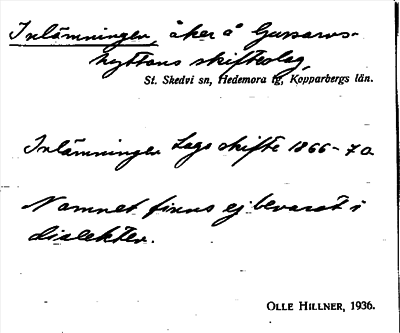 Inlämningen, åker å Gussarvs-
hyttans skifteslag,
St. Skedvi sn, Hedemora tg, Kopparbergs län.
Inlämningen Laga skifte 1866-70
Namnet finns ej bevarat i
dialekten.
OLLE HILLNER, 1936.